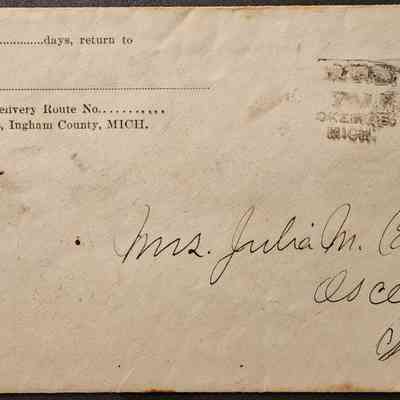 ..............days, return to
elivery Route No..........
, Ingham County, MICH.
OKEMOS
MICH.
Mrs. Julia M.
Osce